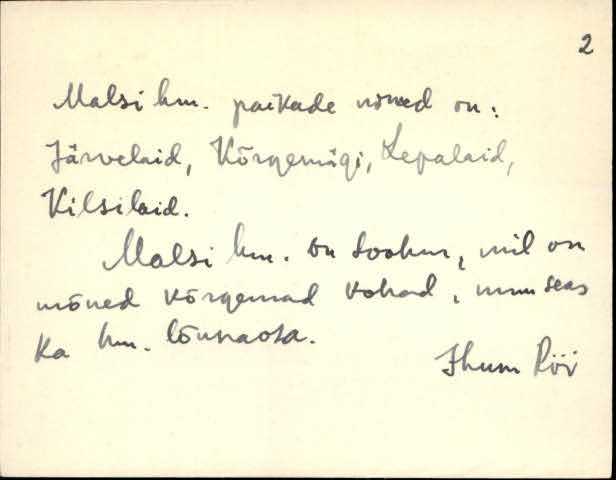 2
Malsi hm. paikade nimed on:
Järvelaid, Kõrgemägi, Lepalaid,
Kilsilaid.
Malsi hm. on soohm, mil on
mõned kõrgemad kohad, nmm seas
ka hm. lõunaosa.